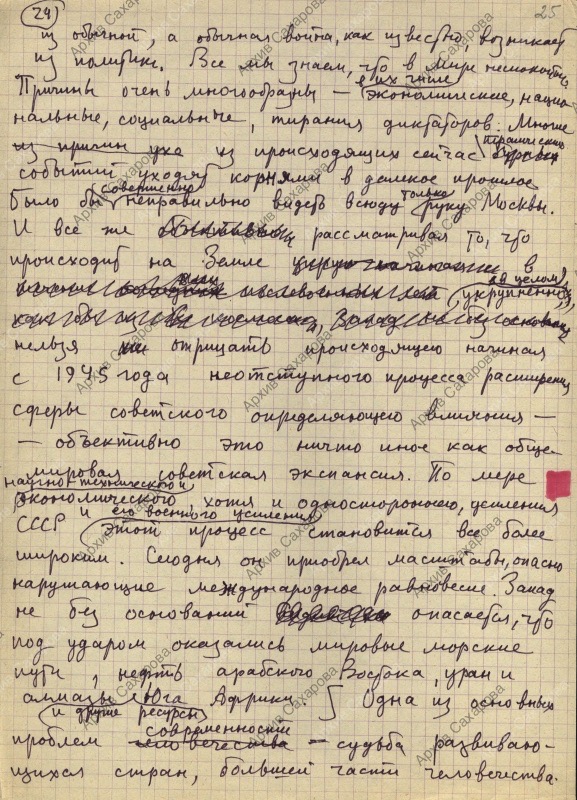 24
25
из обычной, а обычная война, как известно, возникает
из политики. Все мы знаем, что в мире неспокойно.
в их числе
Причины очень многообразны — экономические, нацио-
нальные, социальные, тирания диктаторов. Многие
из причин уже из происходящих сейчас трагических
событий уходят корнями в далекое прошлое
совершенно только
Было бы неправильно видеть всюду руку Москвы.
И все же рассматривая то, что
происходит на Земле в
в целом,
укрупненно,
нельзя отрицать происходящего начиная
с 1945 года неотступного процесса расширения
сферы советского определяющего влияния —
— объективно это ничто иное как обще-
мировая советская экспансия. По мере
научно-технического и
экономического хотя и одностороннего, усиления
СССР и его военного усиления
этот процесс становится все более
широким. Сегодня он приобрел масштабы, опасно
нарушающие международное равновесие. Запад
не без оснований опасается, что
под ударом оказались мировые морские
пути, нефть арабского Востока, уран и
алмазы Юга Африки. Одна из основных
и другие ресурсы
современности
проблем человечества — судьба развиваю-
щихся стран, большей части человечества.
Архив Сахарова